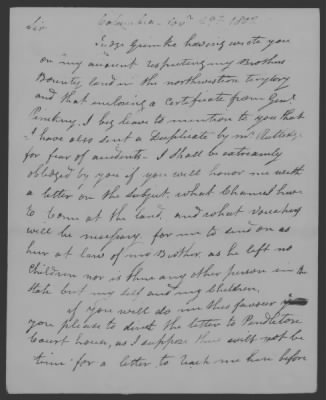 Columbia Novr 29th 1802
Sir
Judge Grimke having wrote you
on my account respecting my Brothers
Bounty land in the northwestern teritory
and that enclosing a Certificate from Genl
Pinckny. I beg leave to mention to you that
I have also sent a Duplicate by mr
for fear of accidents - I shall be extreamly
obliged by you if you will honor me with
a letter on the subject. what Chanel
to Come at the land, and what vouchers
will be necessary for me to send on as
heir at law of my Brother, as he left no
Children nor is there any other person in the
State but my self and my Children,
if you will do me this favour
you please to direct the letter to Pendleton
Court house, as I suppose there will not be
time for a letter to reach me here before